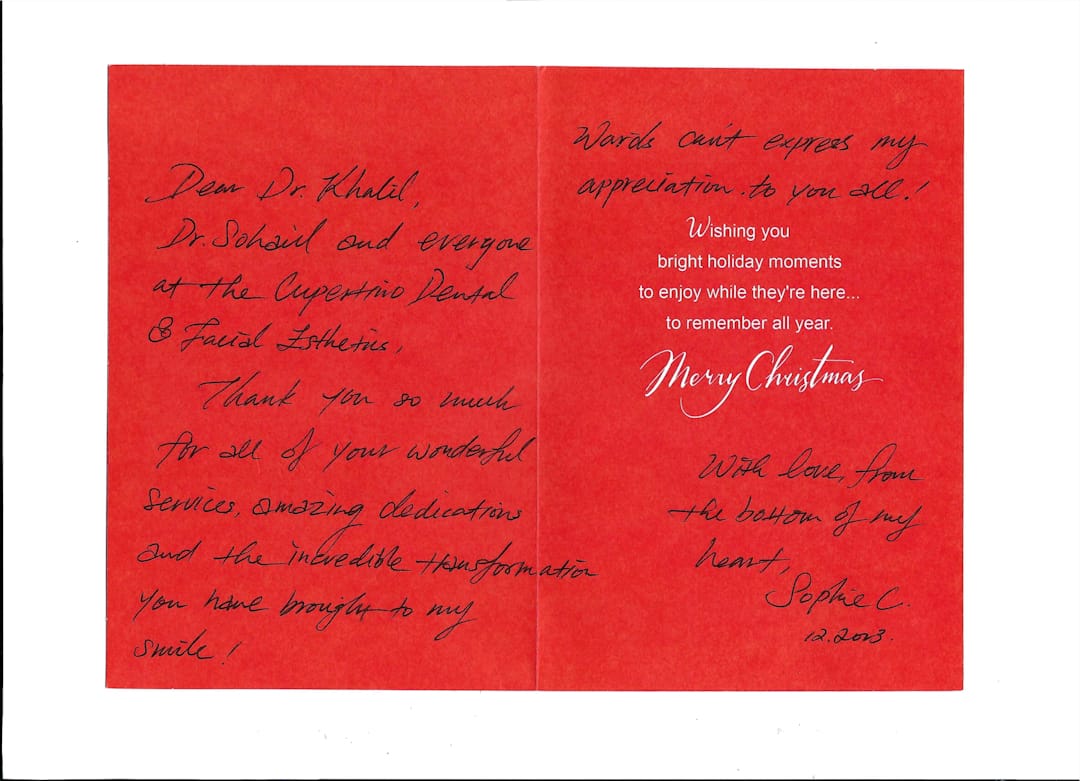 Dear Dr. Khalil,
Dr. Sohail and everyone
at the Cupertino Dental
& Facial Esthetics,
Thank you so much
for all of your wonderful
services, amazing dedications
and the incredible transformation
you have brought to my
smile!
Words can't express my
appreciation to you all!
Wishing you
bright holiday moments
to enjoy while they're here...
to remember all year.
Merry Christmas
With love, from
the bottom of my
heart,
Sophie C.
12.2013.